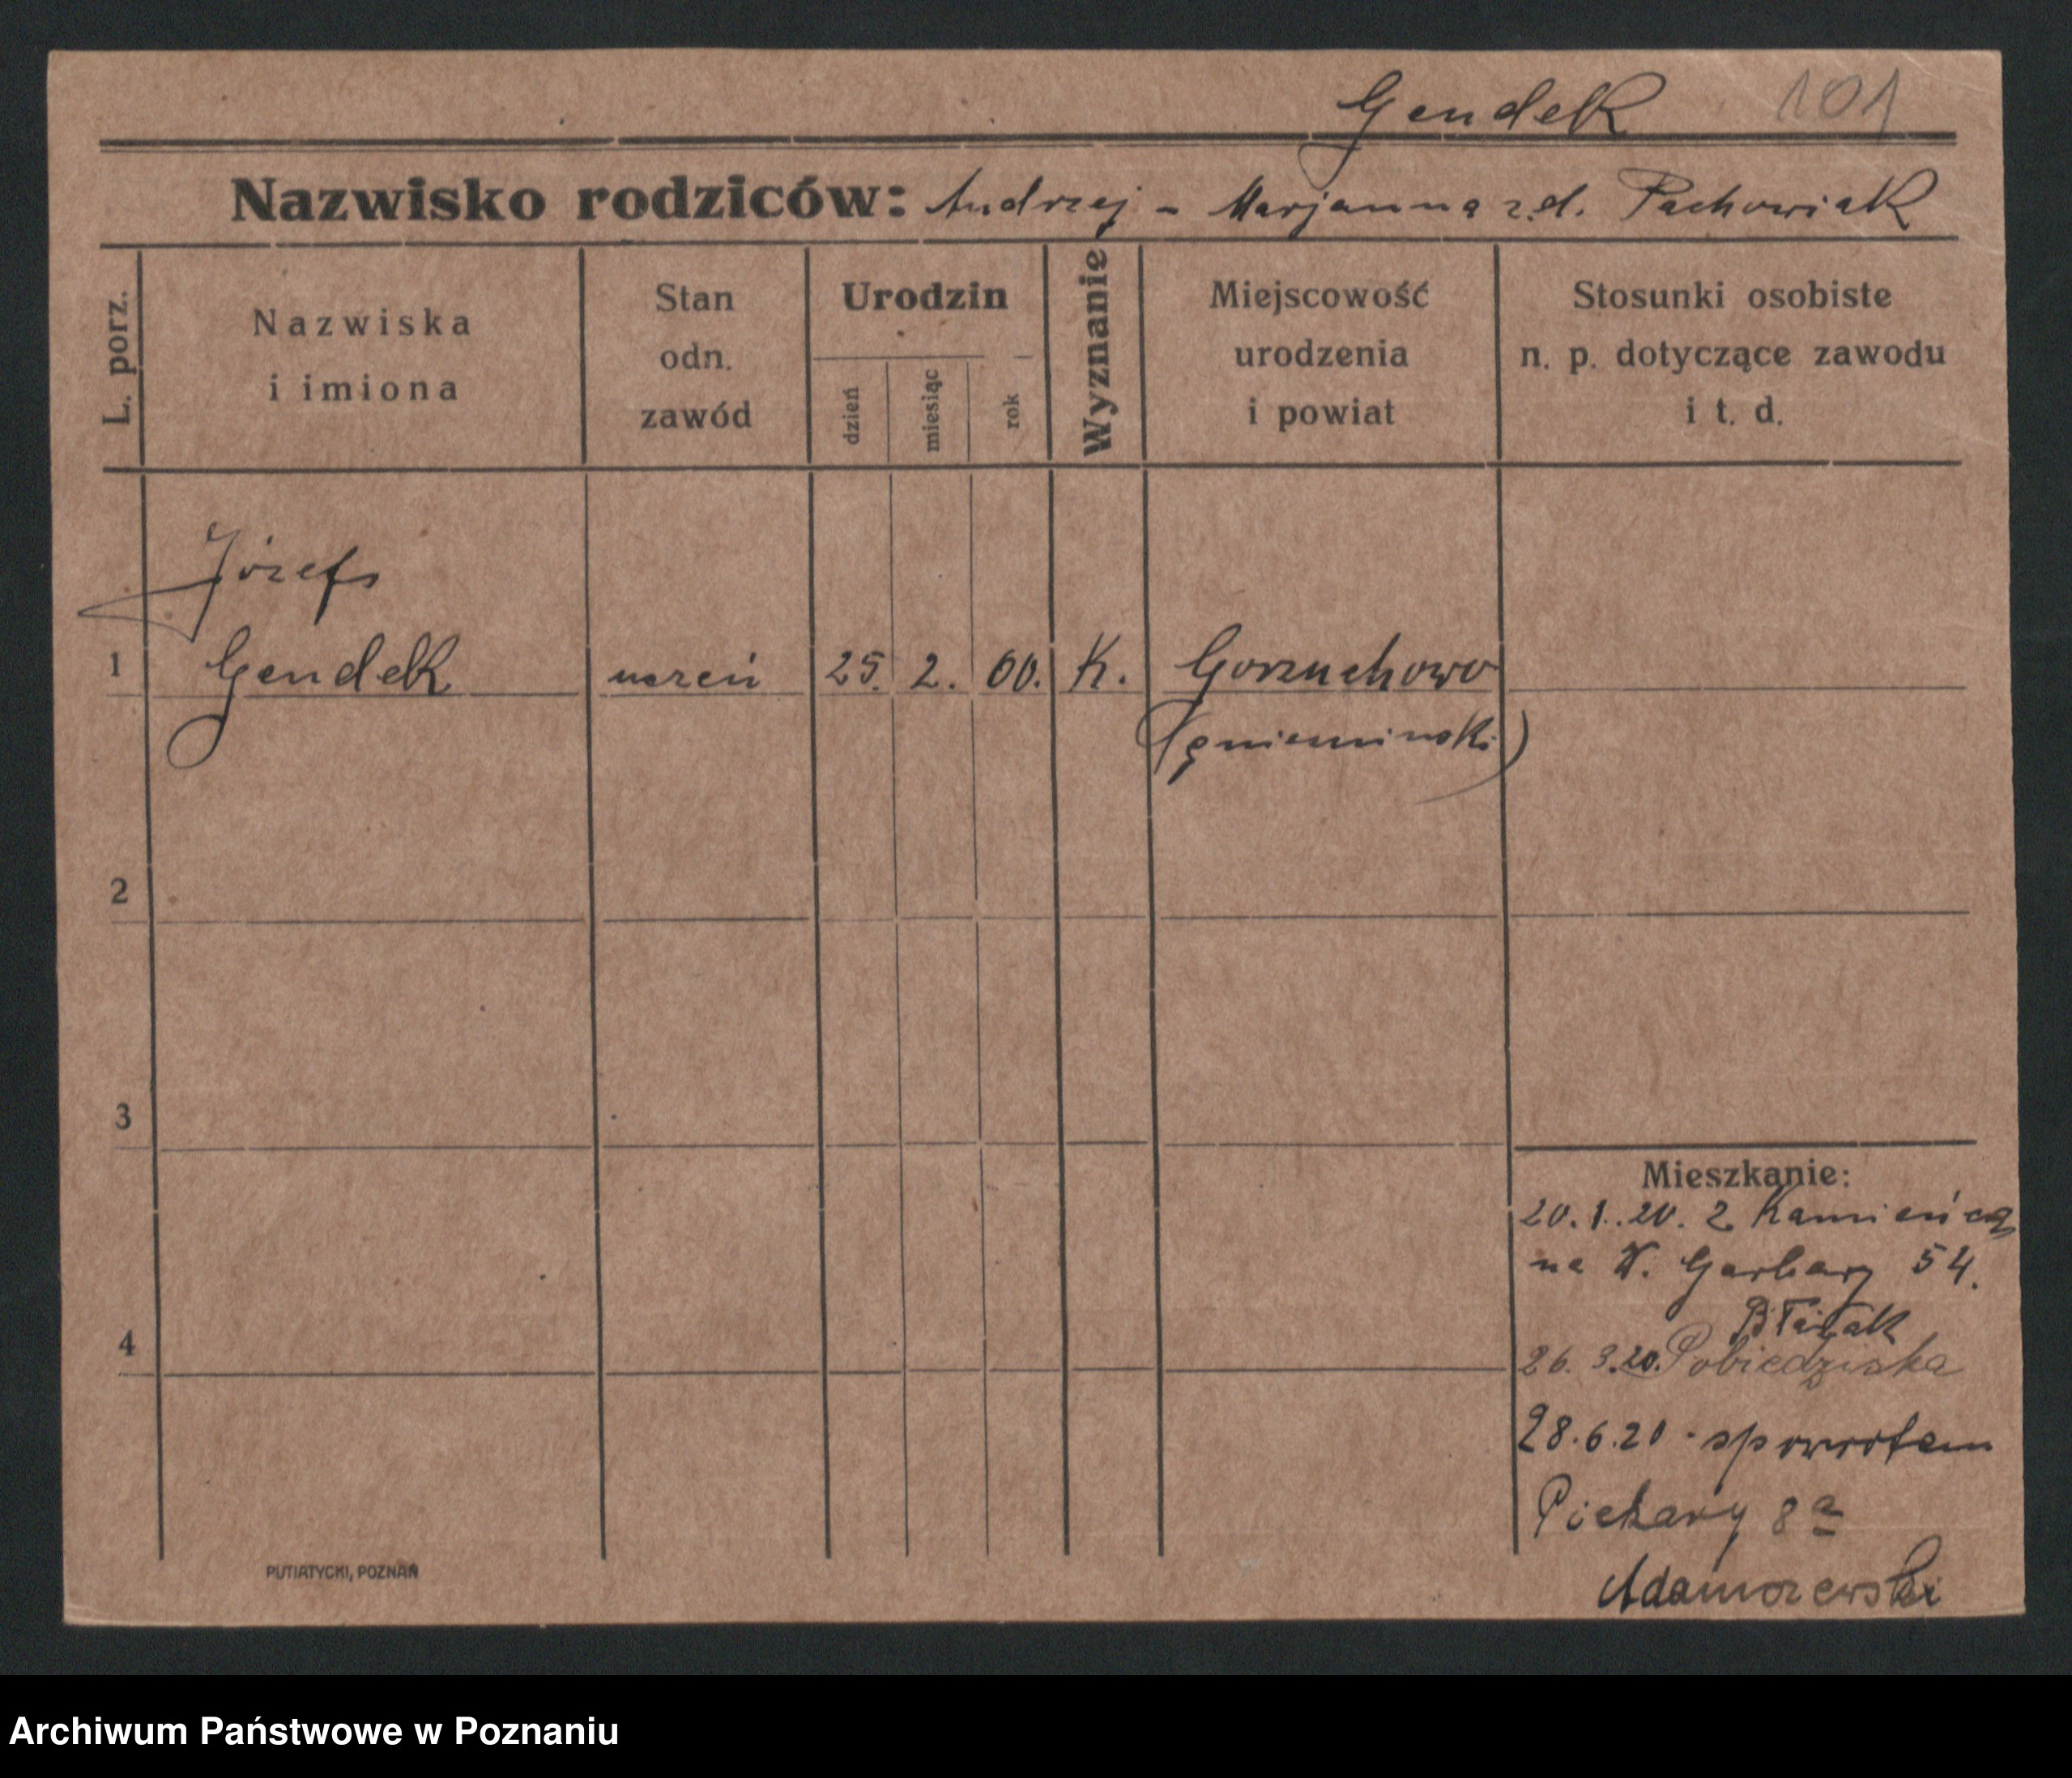 Gendek 101
Nazwisko rodziców: Andrzej - Marjanna z.d. Pachowiak
L. porz.
Nazwiska
i imiona
Stan
odn.
zawód
Urodzin
dzień
miesiąc
rok
Wyznanie
Miejscowość
urodzenia
i powiat
Stosunki osobiste
n. p. dotyczące zawodu
i t. d.
Józef
1 Gendek uczeń 25. 2. 00. K. Gorzuchowo
(gnieźnieński)
2
3
4
Mieszkanie:
20.1.20. z Kamieńca
na W. Garbary 54.
26.3.20. Pobiedziska
28.6.20 · spowrotem
Piekary 8a
Adamczewski
PUTIATYCKI, POZNAŃ
Archiwum Państwowe w Poznaniu